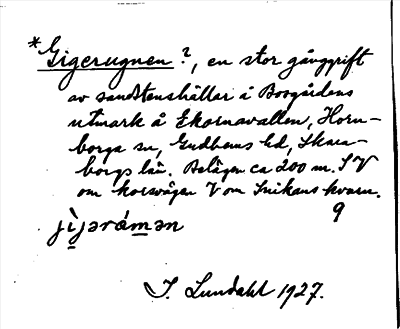 *Gigerugnen?, en stor gånggrift
av sandstenshällar å Bosgårdens
utmark å Ekornavallen, Horn-
borga sn, Gudhems hd, Skara-
borgs län. Belägen ca 200 m. SV
om korsvägen V om Snikens kvarn.
9
jìjerámen
I. Lundahl 1927.